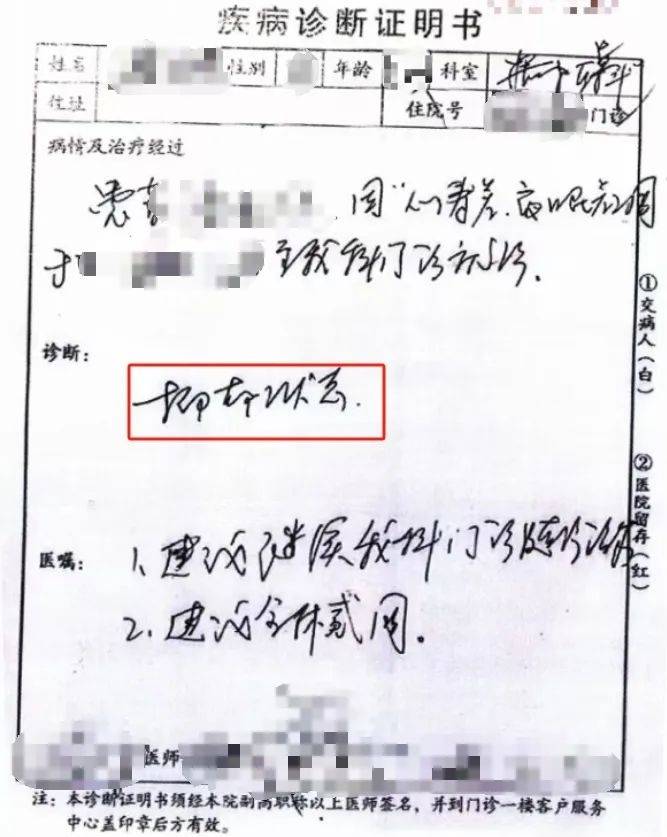 疾病诊断证明书
姓名 性别 年龄 科室
住址 住院号 门诊
病情及治疗经过
患者 因“心情差、夜眠差1周
于 至我科门诊就诊.
诊断:
抑郁状态.
医嘱: 1、建议继续我科门诊随诊治疗
2、建议全休贰周.
医师
注: 本诊断证明书须经本院副高职称以上医师签名,并到门诊一楼客户服务
中心盖印章后方有效。
①交病人(白)
②医院留存(红)